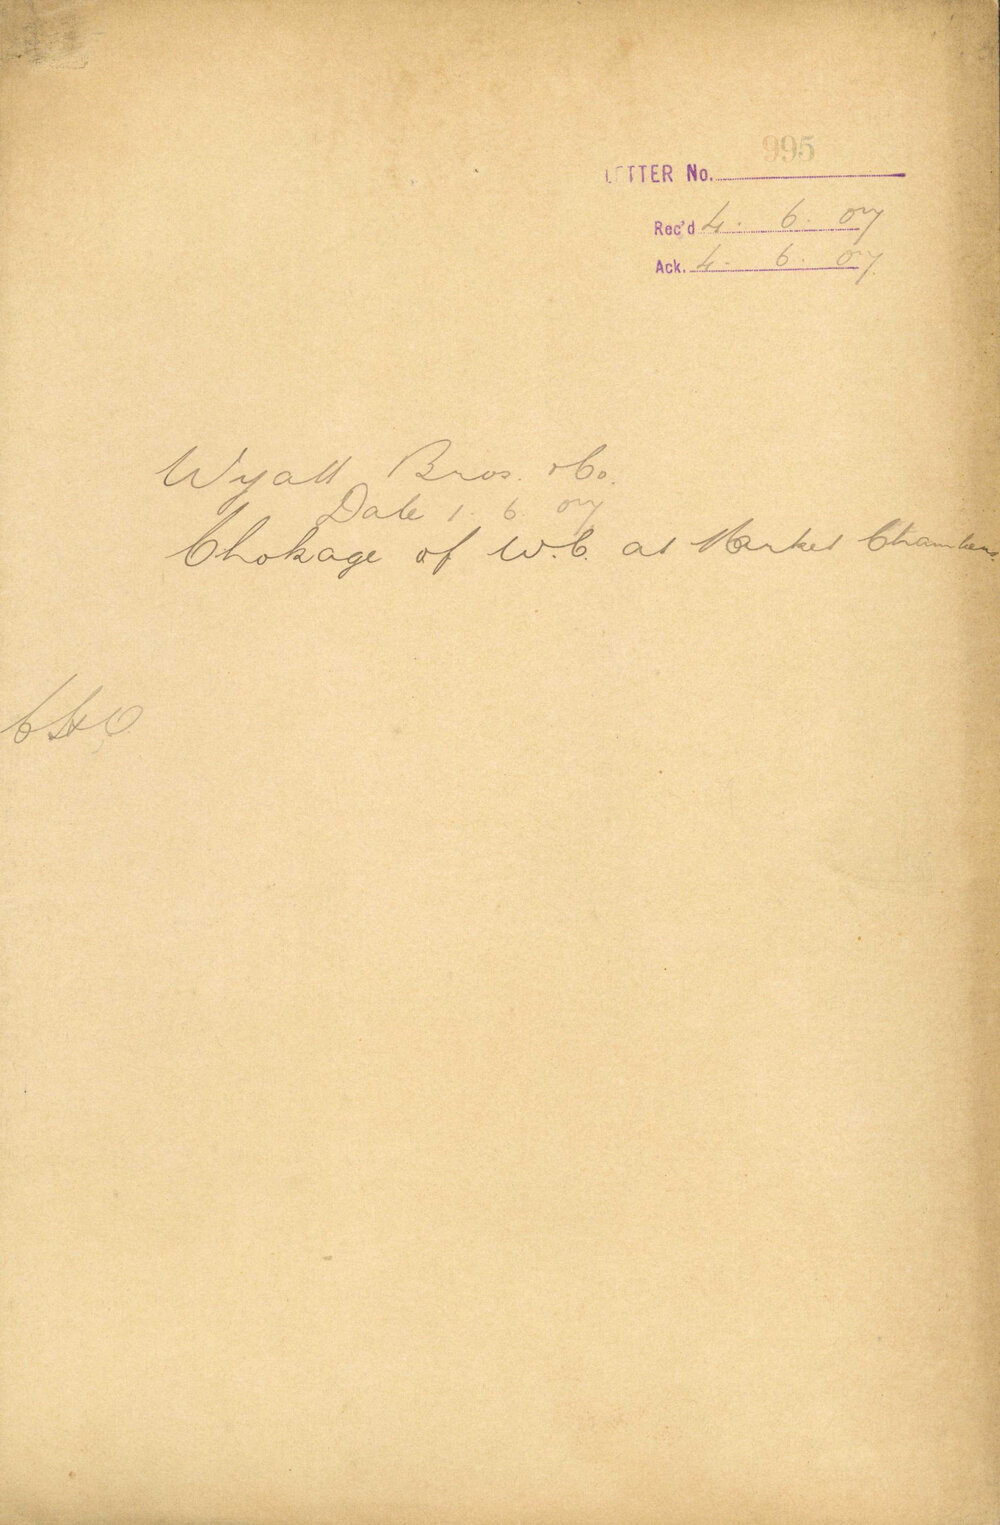 995
LETTER No.
Rec'd 4. 6. 07
Ack. 4. 6. 07.
Wyatt Bros. & Co.
Date 1. 6. 07
Chokage of W.C. at Market Chambers.
CHO